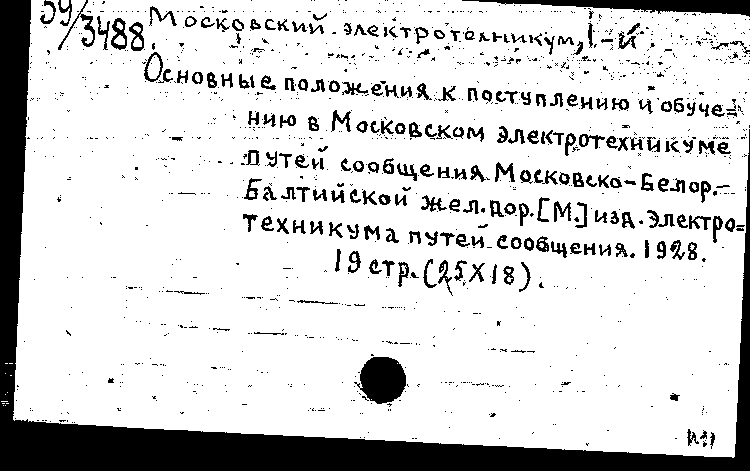 59/3488.
Московский электротехникум, I-й
Основные положения к поступлению и обуче=
нию в Московском электротехникуме
путей сообщения Московско-Белор.-
Балтийской жел.дор. [М.] изд. Электро=
техникума путей сообщения. 1928.
19 стр. (25X18).